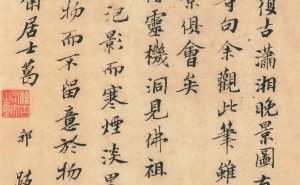 復古瀟湘晚景圖
句余觀此筆雖
景俱會矣
靈機洞見佛祖
汜影而寒煙淡
物而不留意於物
居士葛
郭